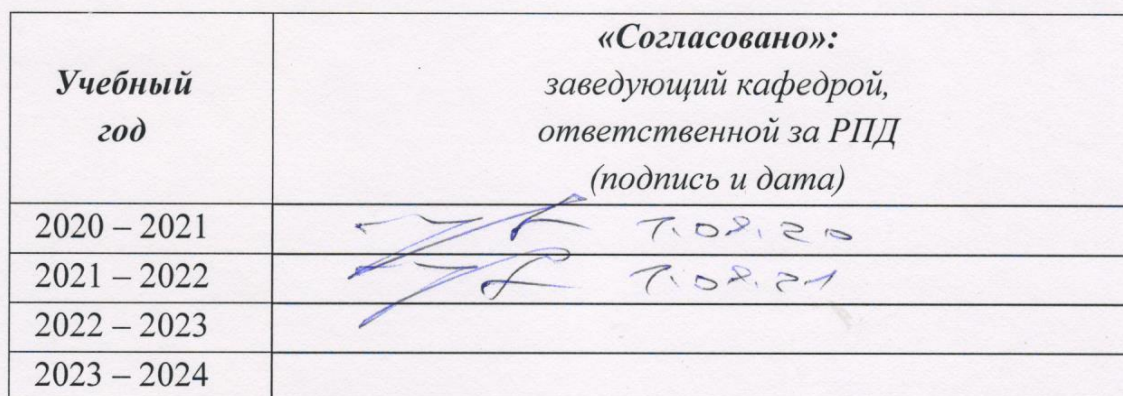 Учебный
год
«Согласовано»:
заведующий кафедрой,
ответственной за РПД
(подпись и дата)
2020 – 2021 1.08.20
2021 – 2022 1.08.21
2022 – 2023
2023 – 2024